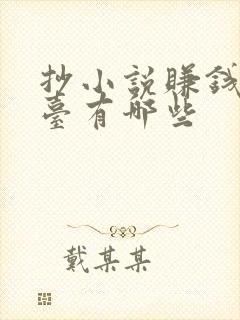 抄小説賺錢
臺有哪些
戴某某